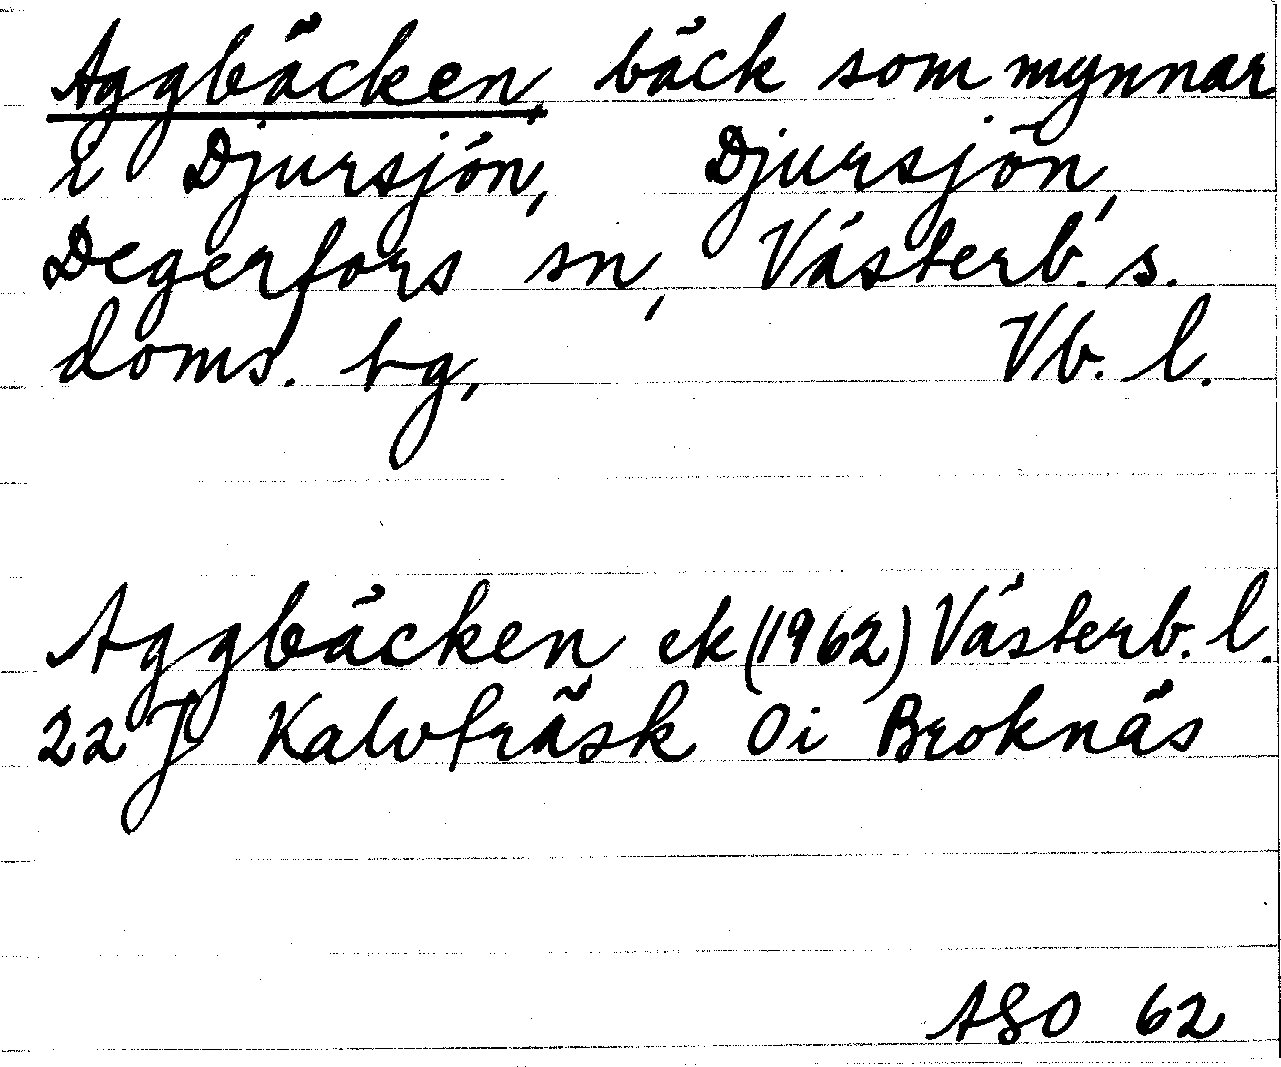 Aggbäcken, bäck som mynnar
i Djursjön, Djursjön,
Degerfors sn, Västerb. s.
doms. tg, Vb. l.
Aggbäcken ek (1962) Västerb. l.
22 J Kalvträsk 0i Broknäs
ASO 62